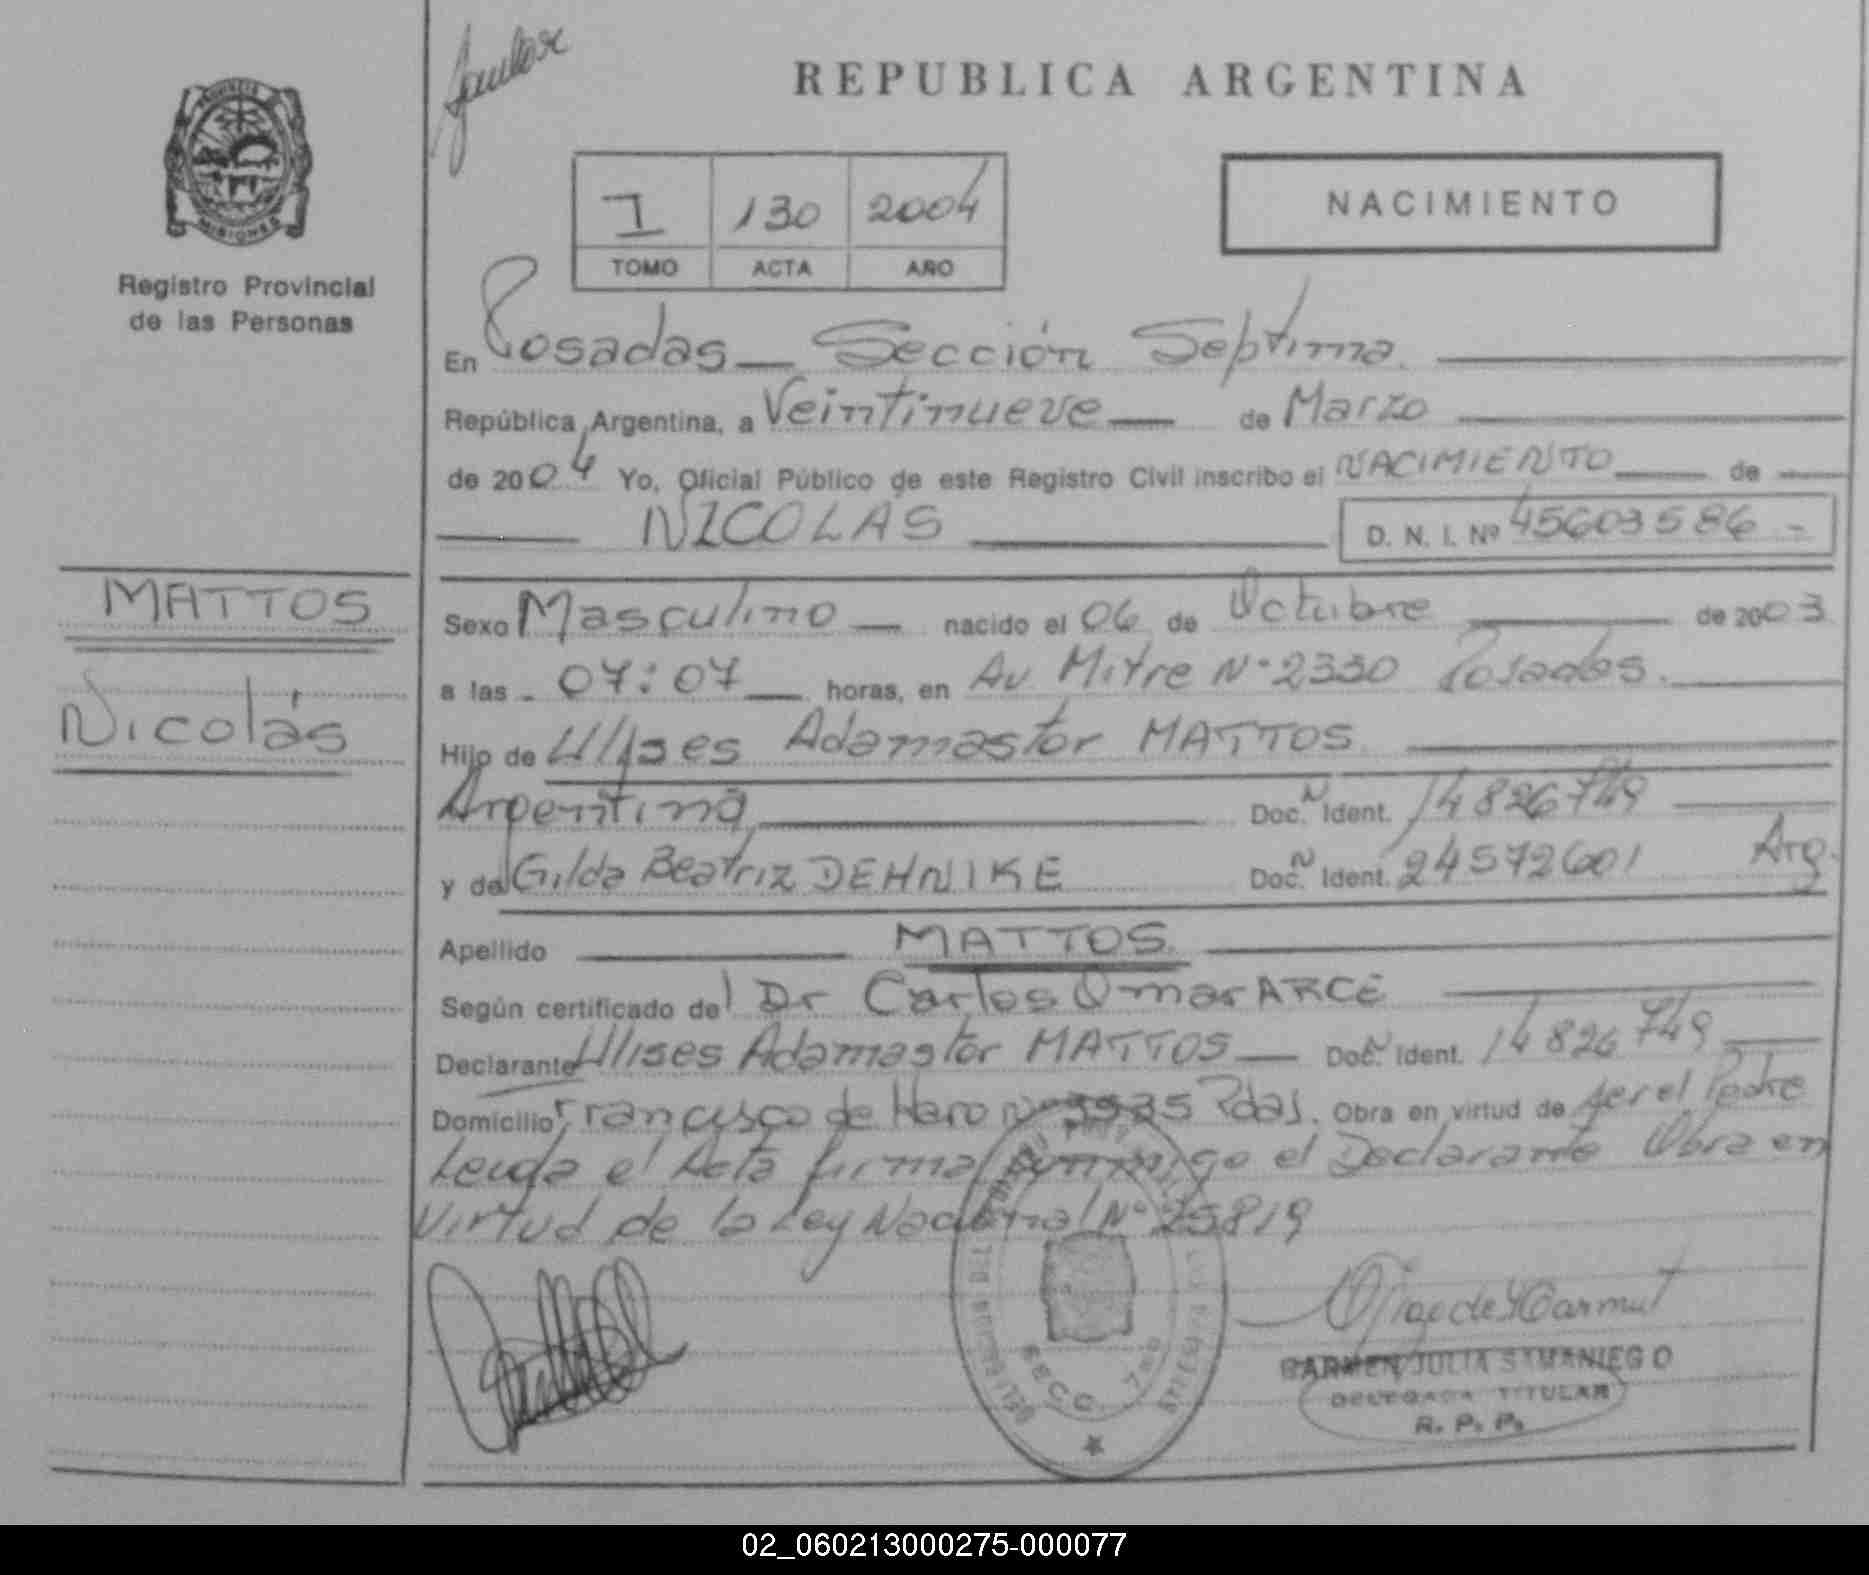 PROVINCIA
MISIONES
Registro Provincial
de las Personas
REPUBLICA ARGENTINA
I 130 2004
TOMO ACTA AÑO
NACIMIENTO
En Posadas — Sección Septima.
República Argentina, a Veintinueve — de Marzo
de 2004 Yo, Oficial Público de este Registro Civil inscribo el NACIMIENTO — de —
NICOLAS D. N. I. Nº 45603586 -
MATTOS
Nicolás
Sexo Masculino — nacido el 06 de Octubre de 2003
a las - 07:07 — horas, en Av Mitre Nº 2330 Posadas.
Hijo de Ulises Adamastor MATTOS
Argentina Doc. N Ident. 14826749
y de Gilda Beatriz DEHNIKE Doc. N Ident. 24572601 Arg.
Apellido MATTOS
Según certificado del Dr Carlos Omar ARCE
Declarante Ulises Adamastor MATTOS — Doc. N Ident. 14826749
Domicilio Francisco de Haro Nº Pdas. Obra en virtud de ser el Padre
Leida el Acta firma conmigo el Declarante Obra en
Virtud de la Ley Nacional Nº 25819
SECC. 7ma
CARMEN JULIA SAMANIEGO
DELEGADA TITULAR
R. P. P.
02_060213000275-000077